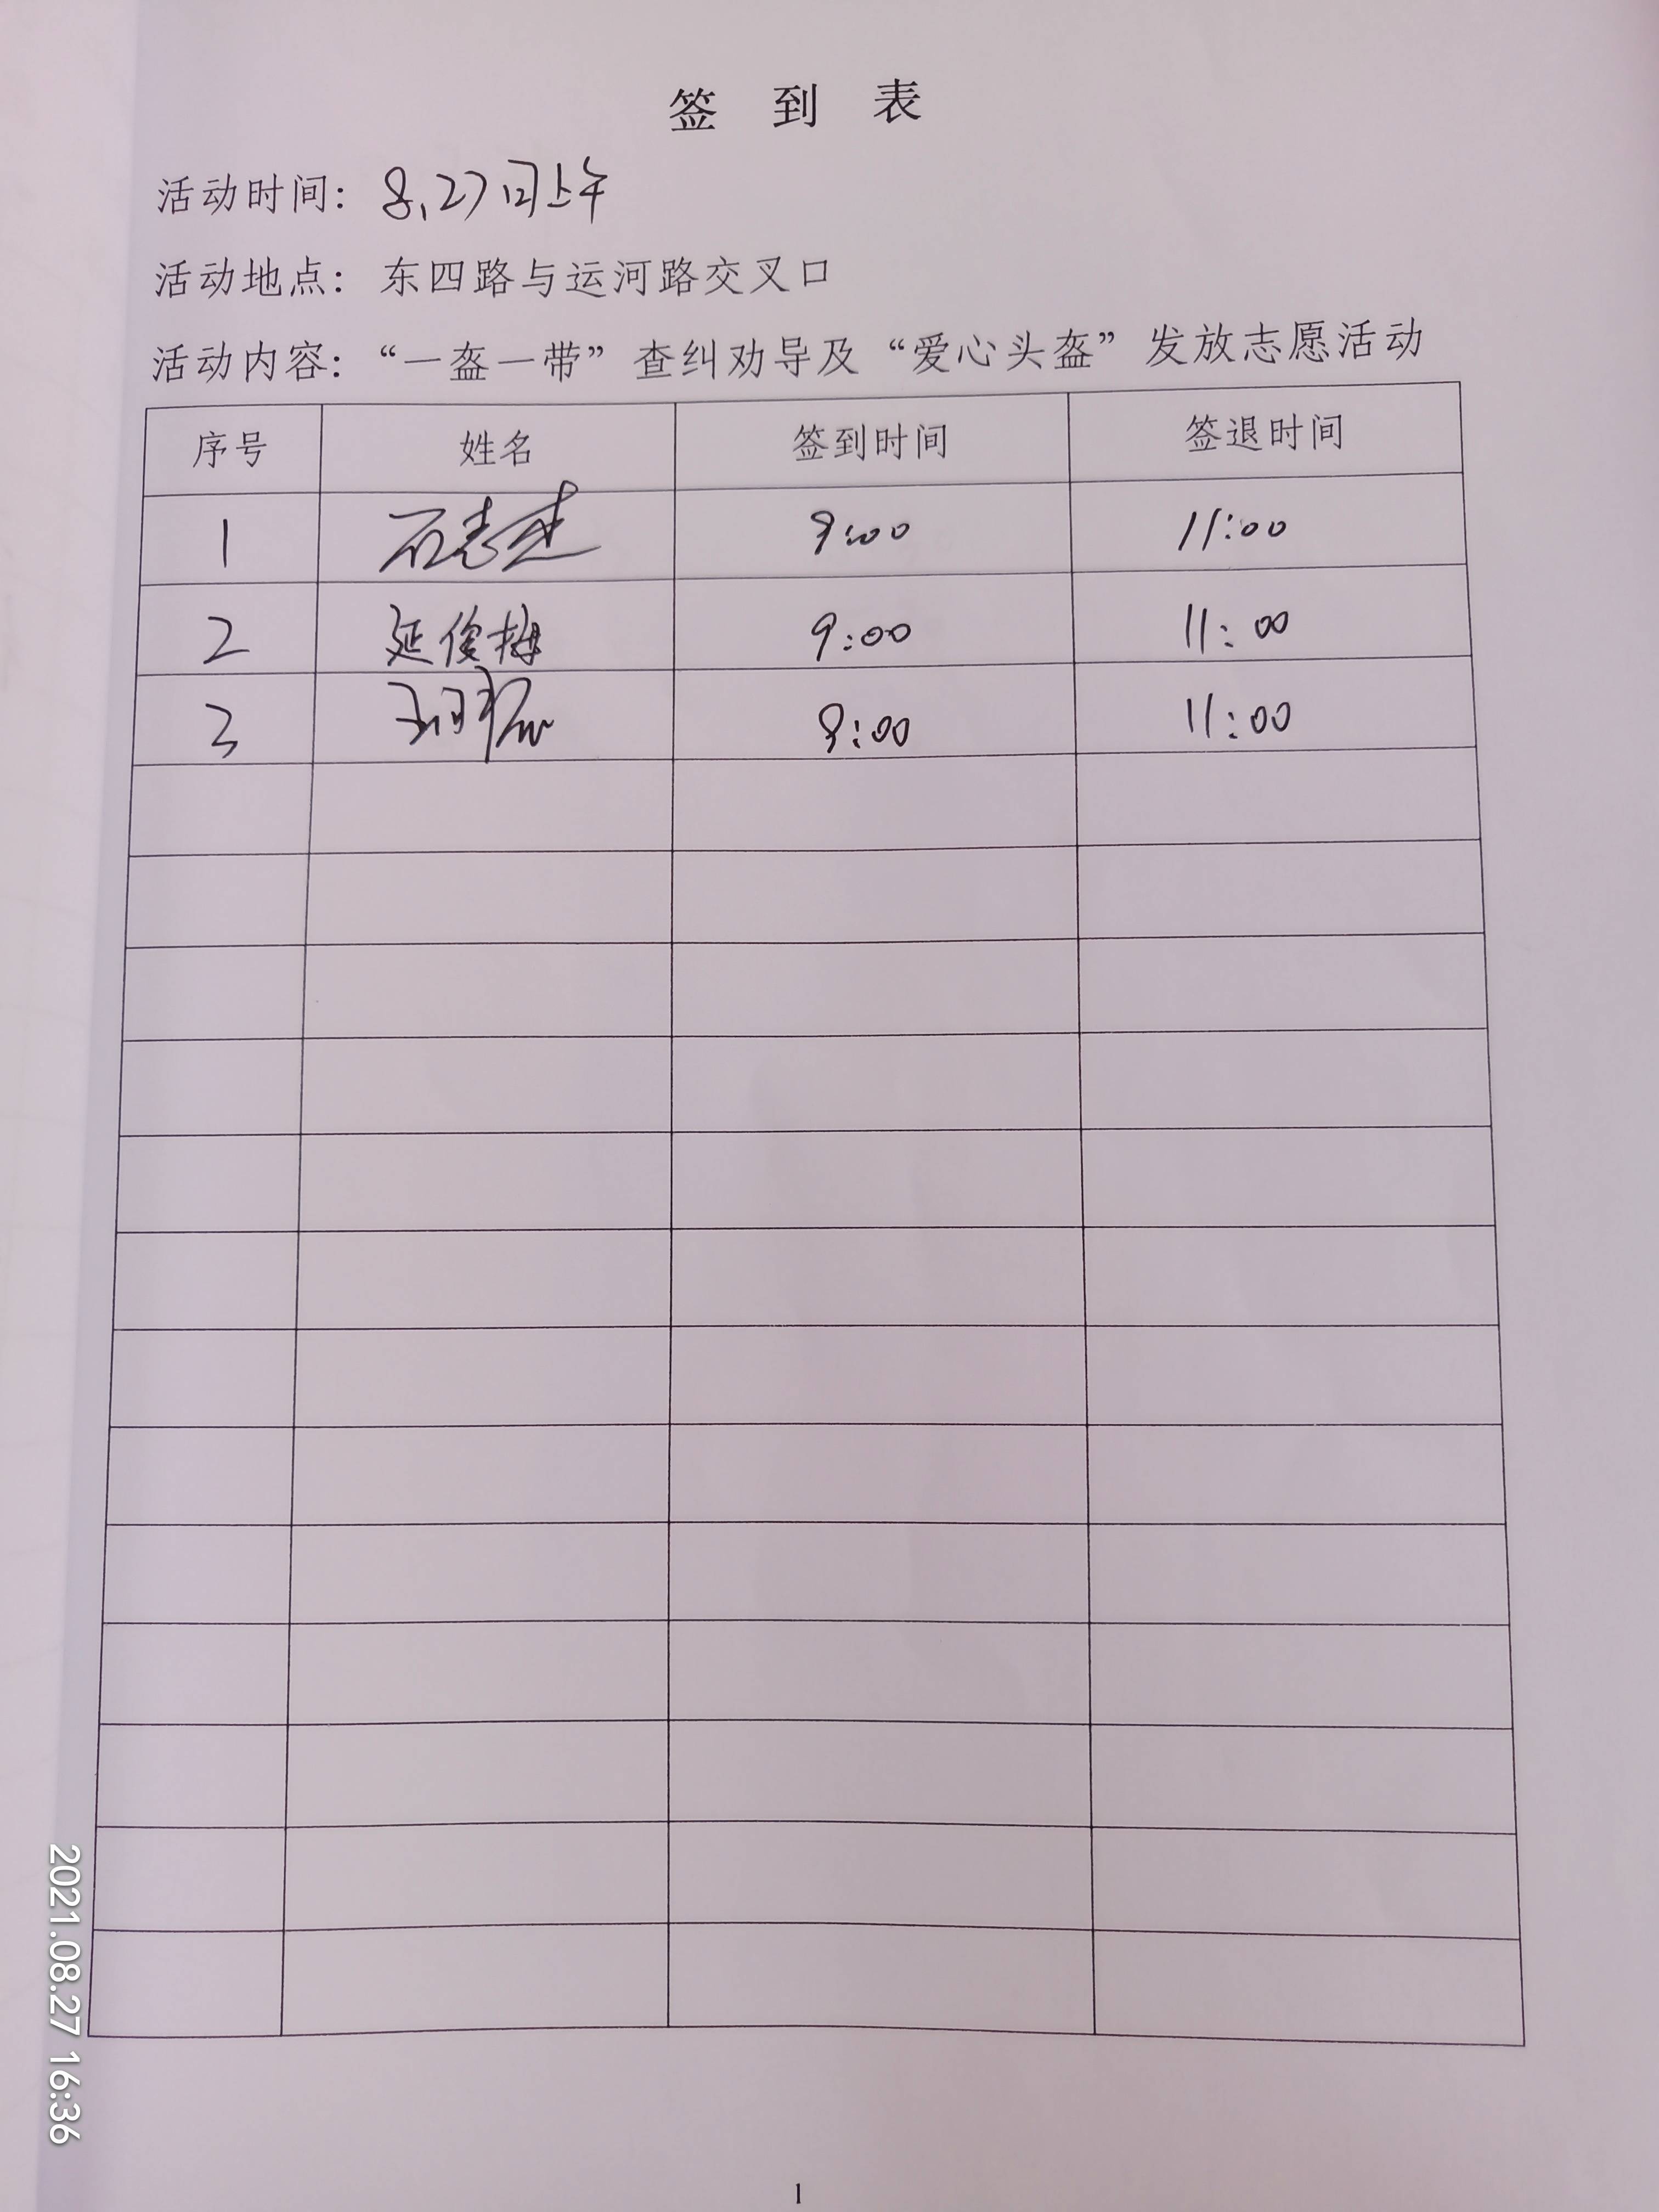 签到表
活动时间：8.27日上午
活动地点：东四路与运河路交叉口
活动内容：“一盔一带”查纠劝导及“爱心头盔”发放志愿活动
序号 姓名 签到时间 签退时间
1 石志杰 9:00 11:00
2 延俊梅 9:00 11:00
3 9:00 11:00
2021.08.27 16:36
1